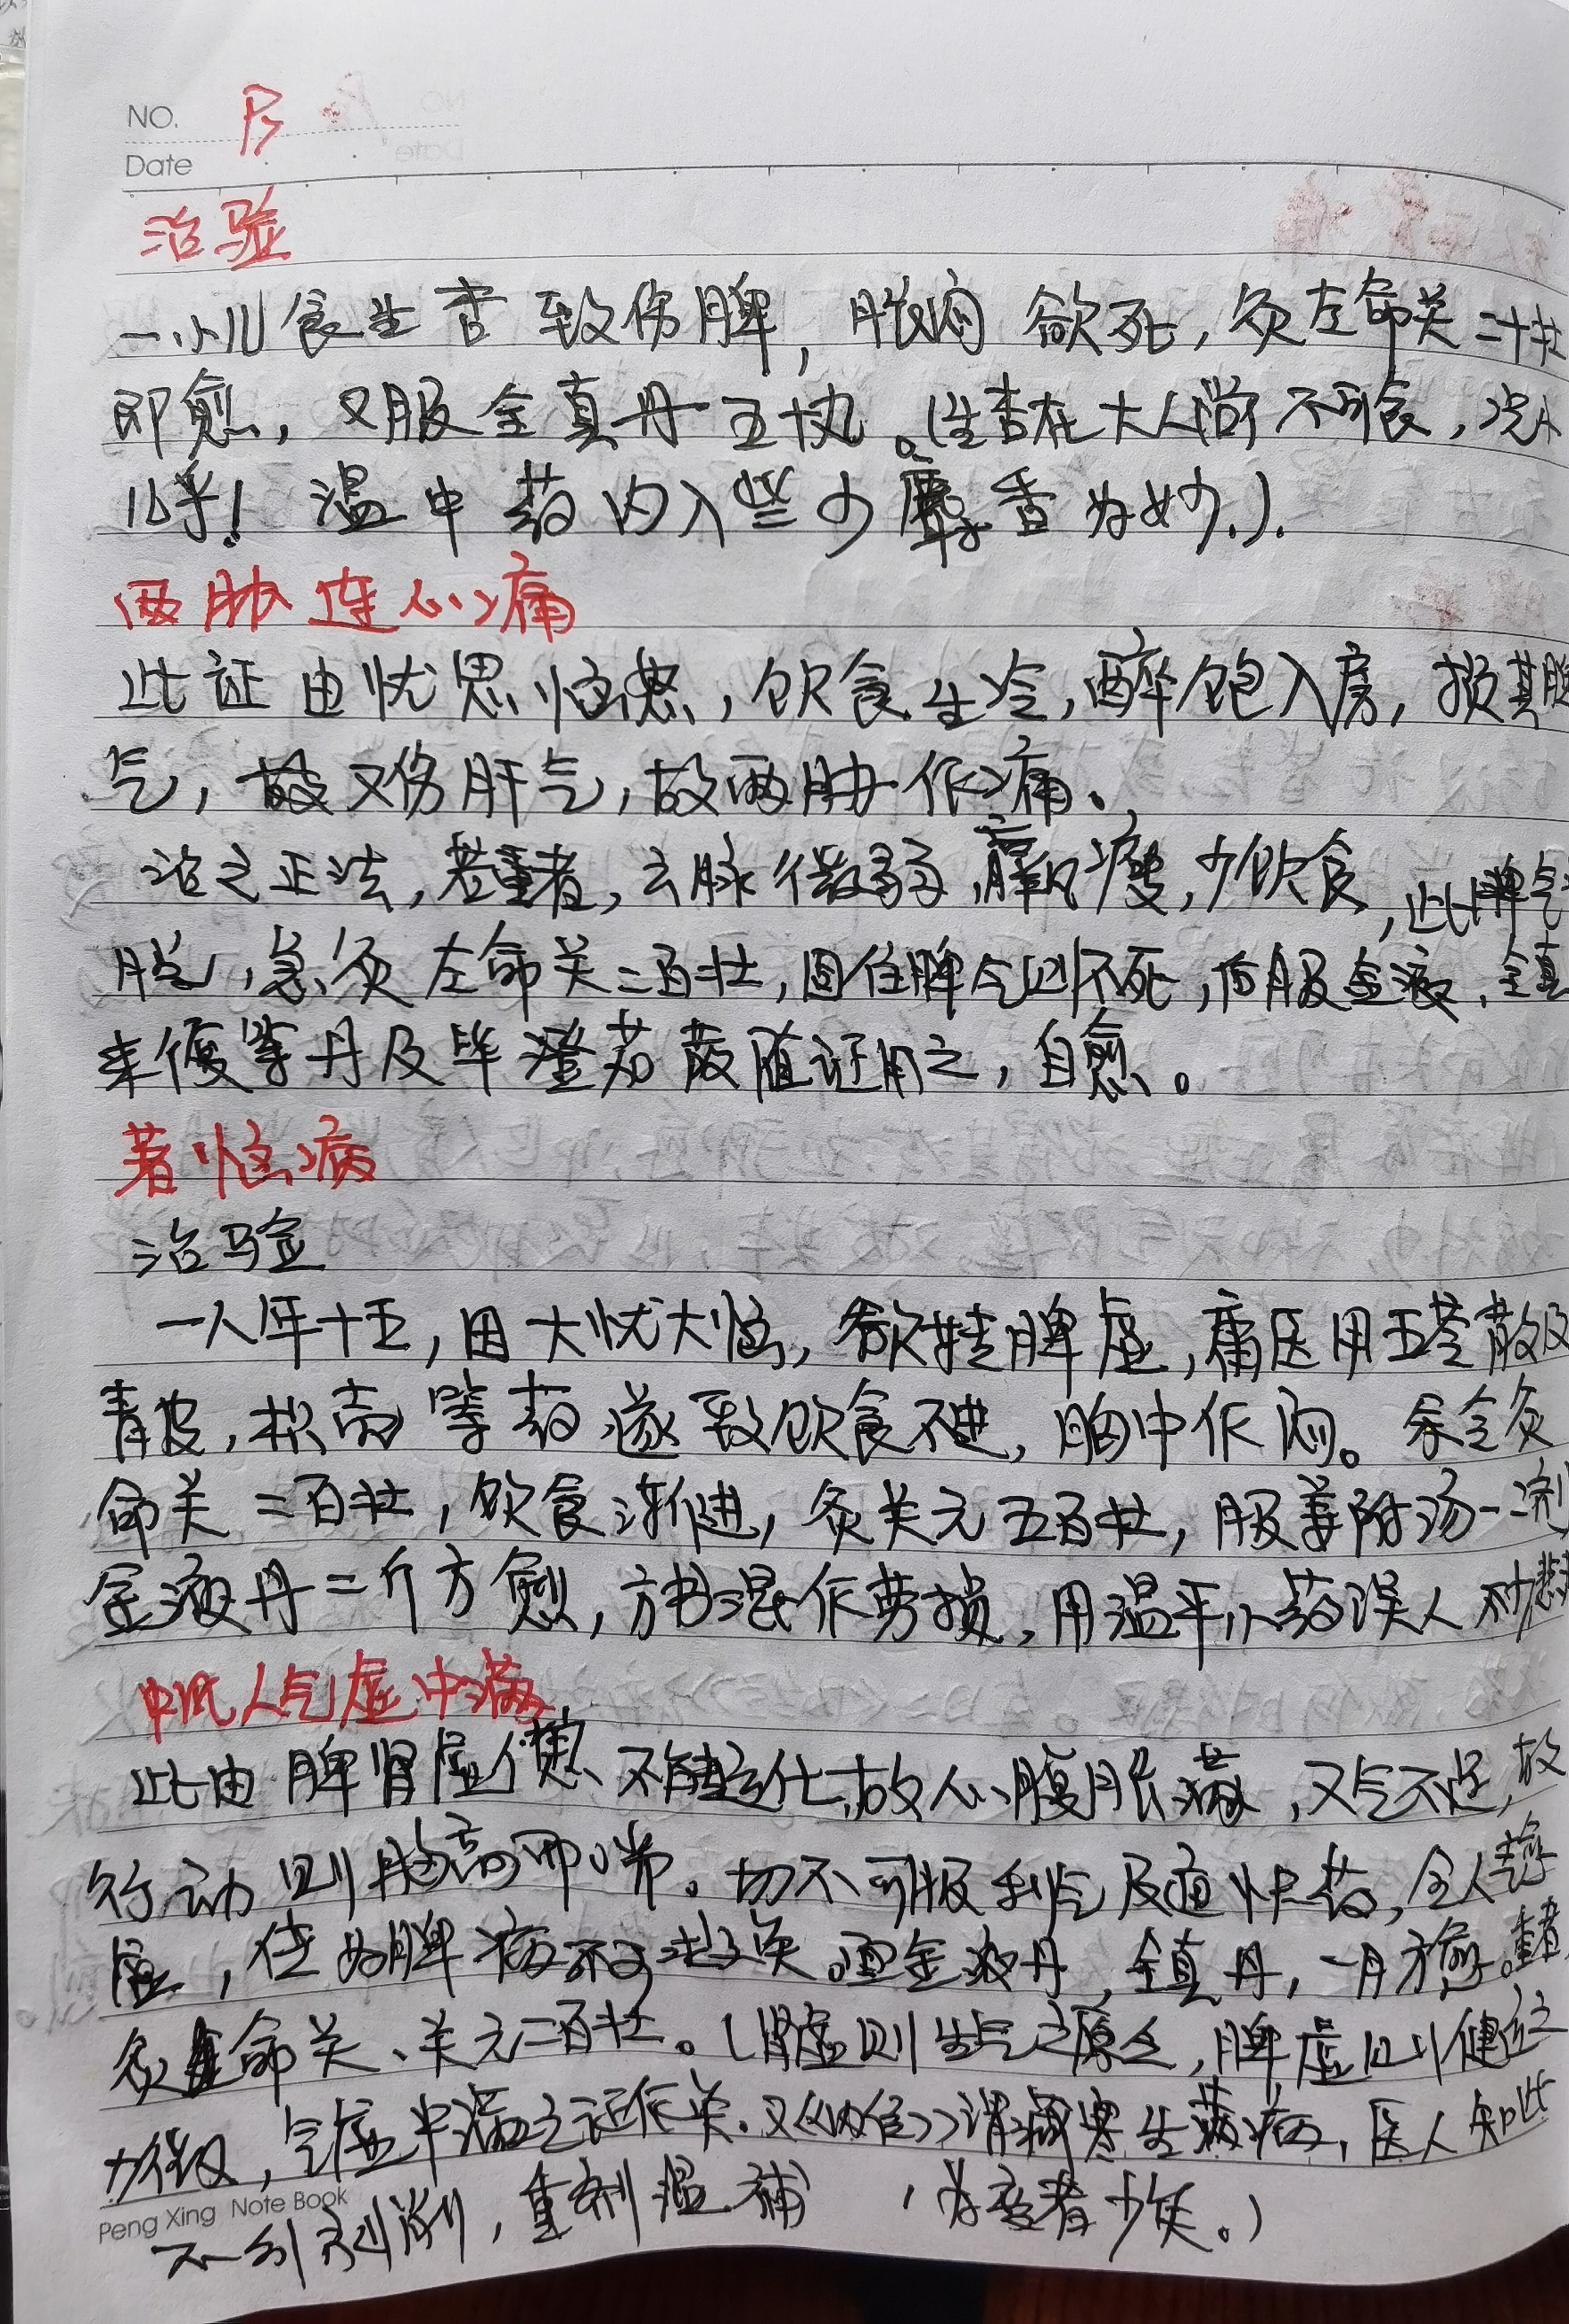 NO.
Date
治验
一小儿食生杏致伤脾,胀闷欲死,灸左命关二十壮
即愈,又服全真丹五十丸。(生杏在大人尚不可食,况小
儿乎!温中药内入些少麝香为妙.).
两胁连心痛
此证由忧思恼怒,饮食生冷,醉饱入房,损其脾
气,故又伤肝气,故两胁作痛。
治之正法,若重者,六脉微弱,羸瘦,少饮食,此脾气
脱,急灸左命关二百壮,固住脾气则不死,后服金液、全真
来復等丹及毕澄茄散随证用之,自愈。
著恼病
治验
一人年十五,因大忧大恼,欲转脾虚,庸医用五苓散及
青皮,枳壳等药遂致饮食不进,胸中作闷。余令灸
命关二百壮,饮食渐进,灸关元五百壮,服姜附汤一二剂
金液丹二斤方愈,方书混作劳损,用温平小药误人不少悲夫
人气虚中满
此由脾肾虚惫不能运化,故心腹胀满,又气不足,故
行动则胸高而喘。切不可服利气及通快药,令人气
虚,传为脾病不可救矣。金液丹,全真丹,一月方愈。重者
灸命关、关元二百壮。(肾虚则生气之原乏,脾虚则健运之
力微,气虚中满之证作矣.又《内经》谓脏寒生满病,医人知此
不行剋削,重剂温补,为变者少矣。)
Peng Xing Note Book